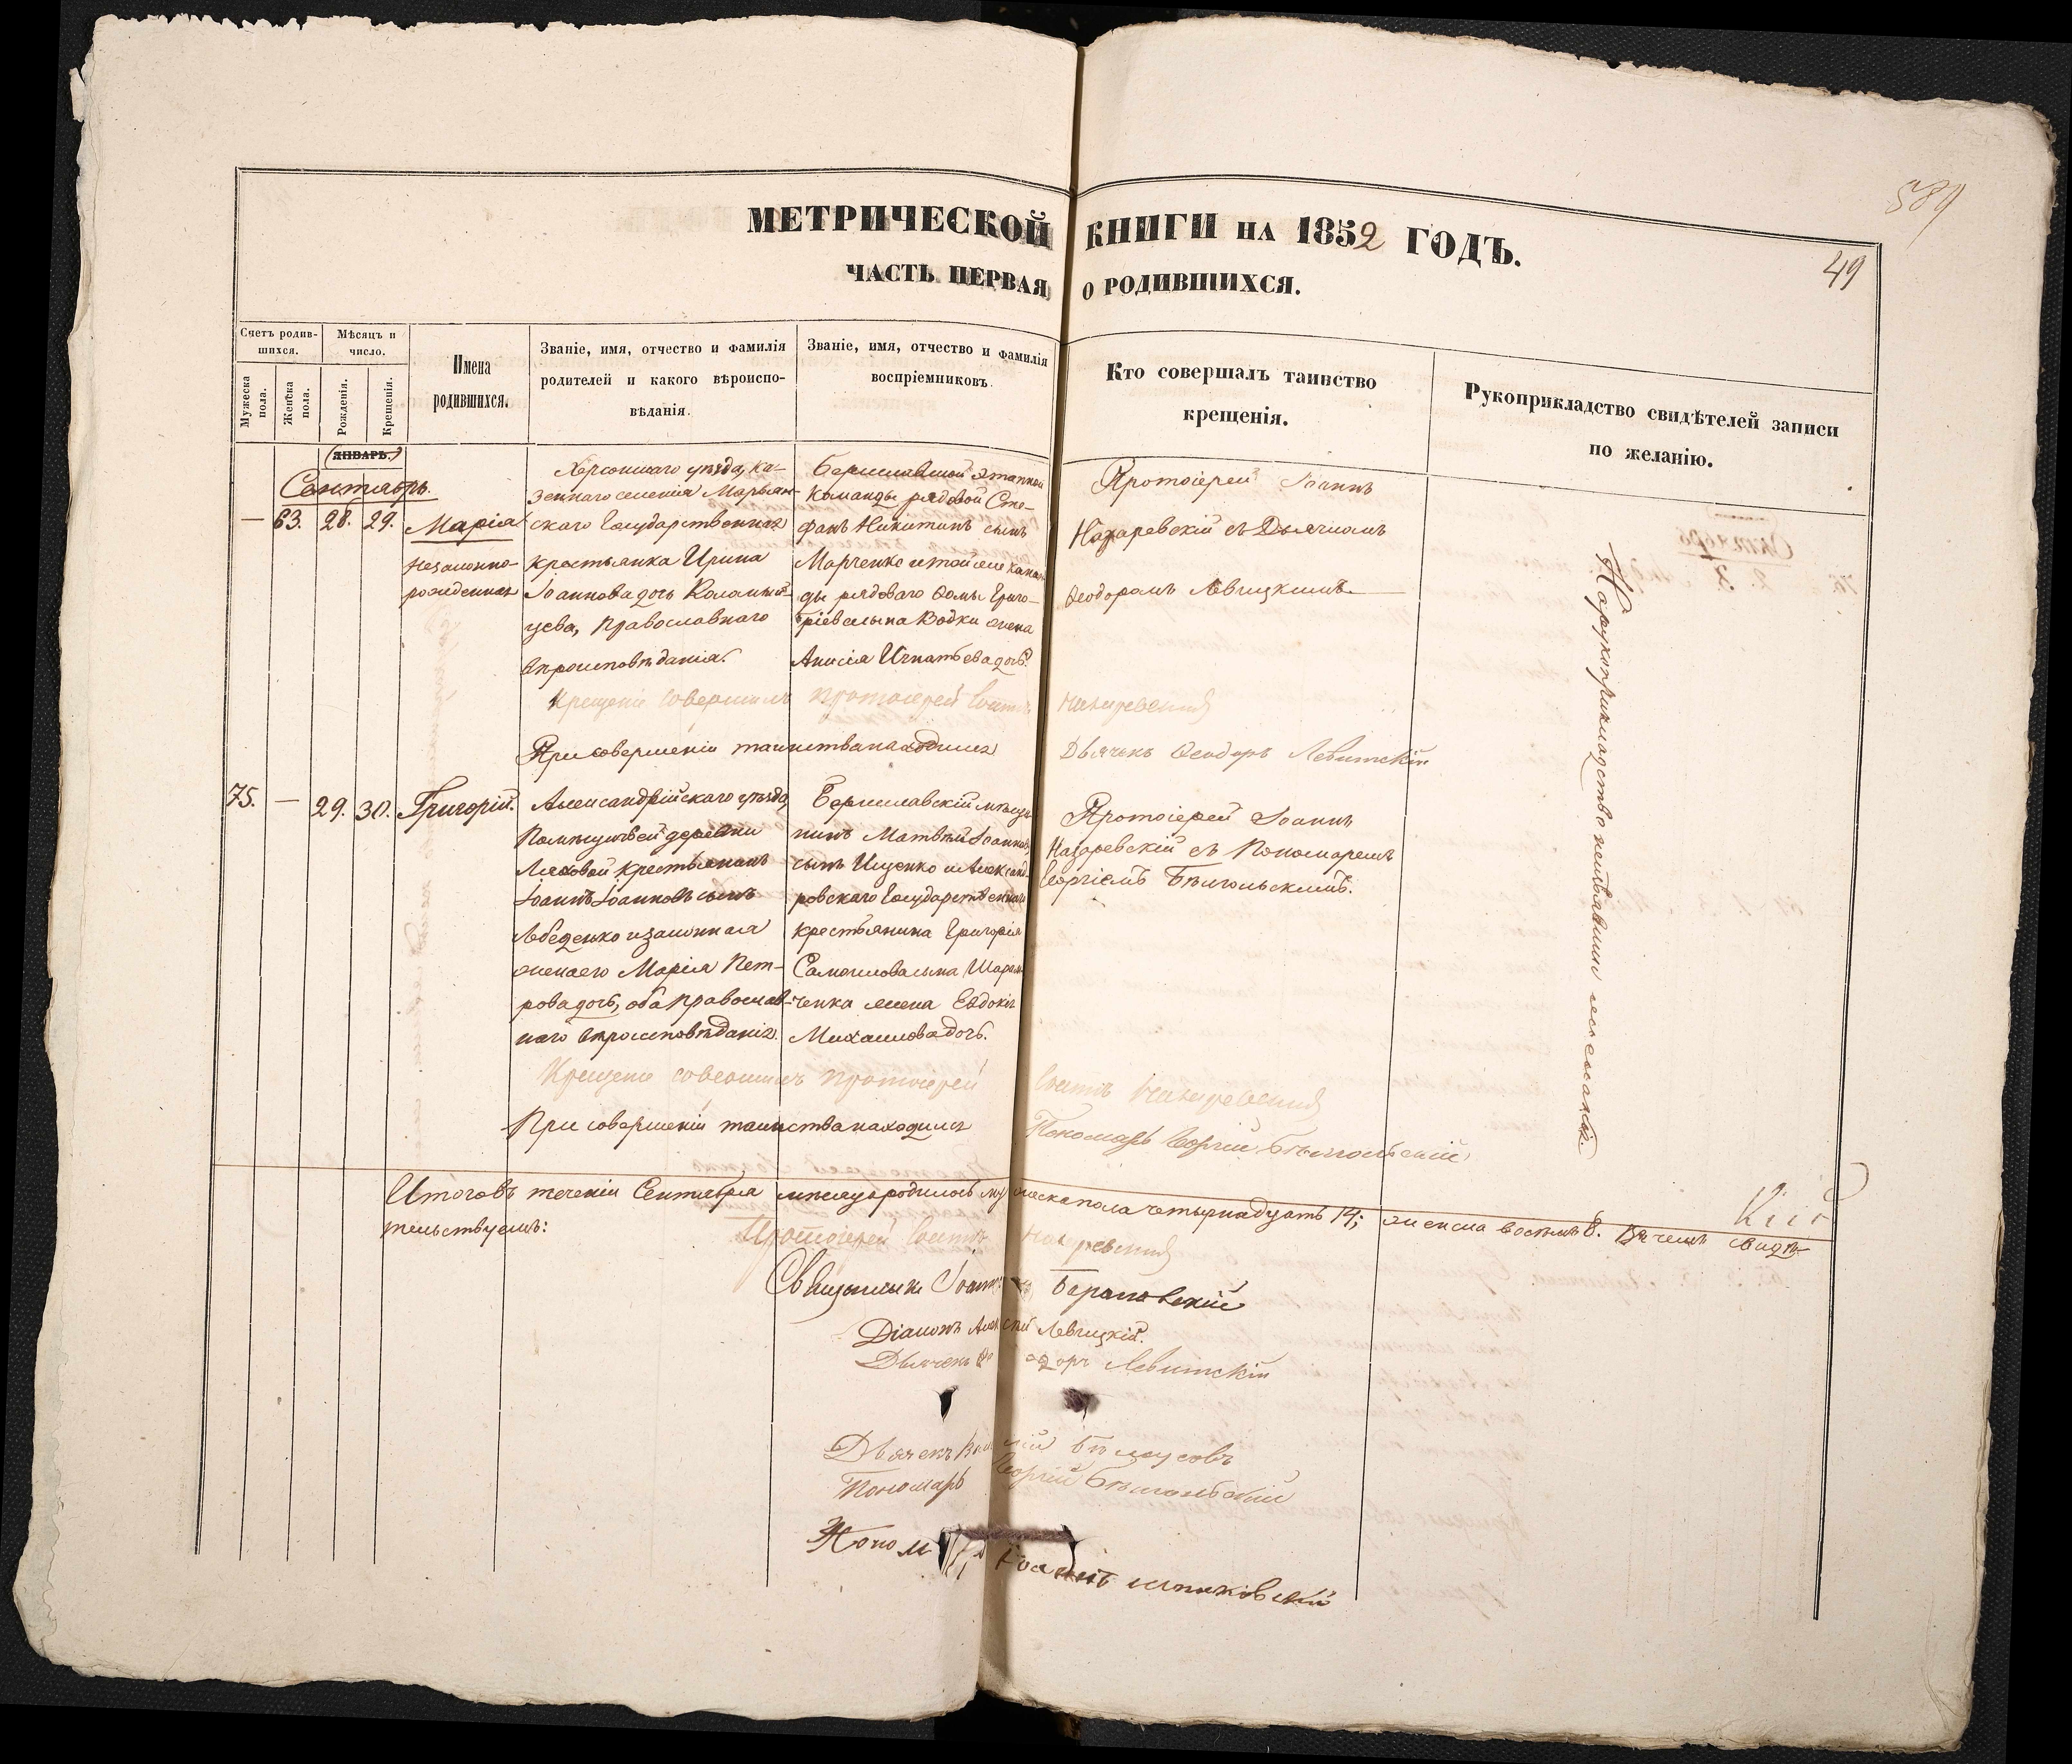 589
МЕТРИЧЕСКОЙ КНИГИ НА 1852 ГОДЪ.
49
ЧАСТЬ ПЕРВАЯ О РОДИВШИХСЯ.
Счетъ родив-
шихся.
Мѣсяцъ и
число.
Мужеска
пола.
Женска
пола.
Рожденія.
Крещенія.
Имена
родившихся.
Званіе, имя, отчество и фамилія
родителей и какого вѣроиспо-
вѣданія.
Званіе, имя, отчество и фамилія
воспріемниковъ.
Кто совершалъ таинство
крещенія.
Рукоприкладство свидѣтелей записи
по желанію.
(ЯНВАРЬ.)
Сентябрь.
— 63. 28. 29.
Марія
незаконно-
рожденная
Херсонскаго уѣзда, ка-
зеннаго селенія Марьян-
скаго Государственная
крестьянка Ирина
Іоаннова дочь
цева, Православнаго
вѣроисповѣданія.
Бериславской Этапной
Команды рядовой Сте-
фанъ Никитинъ сынъ
Марченко и той же Коман-
ды рядоваго Фомы Григо-
ріева сына Водки жена
Анисія Игнатьева дочь.
Протоіерей Іоаннъ
Назаревскій съ Дьячкомъ
Ѳеодоромъ Левицкимъ.
Крещеніе совершилъ Протоіерей Іоаннъ Назаревскій
При совершеніи таинства находился Дьячекъ Ѳеодоръ Левитскій
75. — 29. 30. Григорій.
Александрійскаго уѣзда,
Помѣщичьей деревни
Ляховой крестьянинъ
Іоаннъ Іоанновъ сынъ
Лебеденко и законная
жена его Марія Пет-
рова дочь, оба Православ-
наго вѣроисповѣданія.
Бериславскій мѣщан-
нинъ Матвѣй Іоанновъ
сынъ Ищенко и Александ-
ровскаго Государственнаго
крестьянина Григорія
Самоилова сына
ченка жена Евдокія
Михаилова дочь.
Протоіерей Іоаннъ
Назаревскій съ Пономаремъ
Георгіемъ
Крещеніе совершилъ Протоіерей Іоаннъ Назаревскій
При совершеніи таинства находился Пономарь Георгій
Къ рукоприкладству неизъявили желанія.
Итого въ теченіи Сентября мѣсяца родилось мужеска пола четырнадцать 14; женска восемь 8. Въ чемъ свидѣ-
тельствуемъ:
Протоіерей Іоаннъ Назаревскій
Священникъ Іоаннъ Барановскій
Діаконъ Алексѣй Левицкій.
Дьячекъ Ѳеодоръ Левитскій
Дьячекъ Василій
Пономарь Георгій
Пономарь Іоаннъ